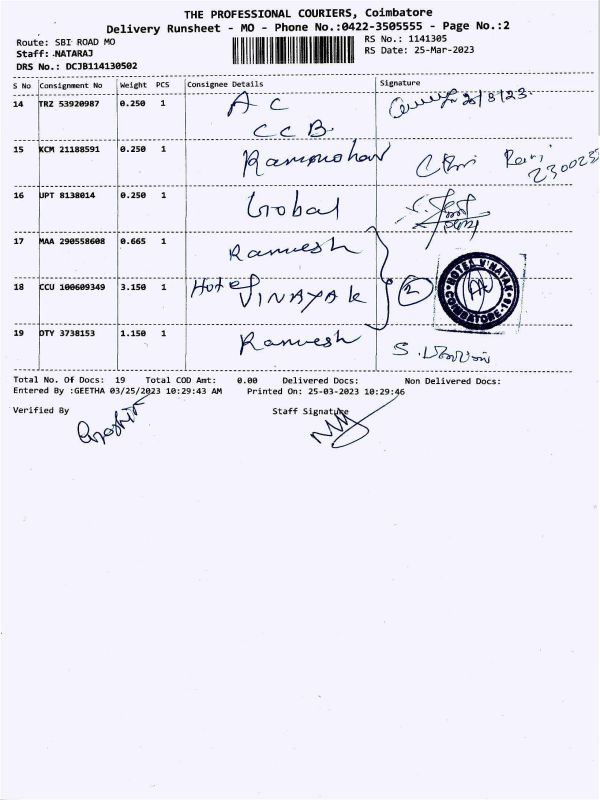 THE PROFESSIONAL COURIERS, Coimbatore
Delivery Runsheet - MO - Phone No.:0422-3505555 - Page No.:2
Route: SBI ROAD MO
RS No.: 1141305
Staff: NATARAJ
RS Date: 25-Mar-2023
DRS No.: DCJB114130502
S No Consignment No Weight PCS Consignee Details Signature
14 TRZ 53920987 0.250 1 A C
CCB
15 KCM 21188591 0.250 1 Rammohan
16 UPT 8138014 0.250 1 Global
17 MAA 290558608 0.665 1 Ramesh
18 CCU 100609349 3.150 1 Hotel VINAYAK 2
HOTEL VINAYAK
COIMBATORE-18
19 DTY 3738153 1.150 1 Ramesh
Total No. Of Docs: 19 Total COD Amt: 0.00 Delivered Docs: Non Delivered Docs:
Entered By :GEETHA 03/25/2023 10:29:43 AM Printed On: 25-03-2023 10:29:46
Verified By Staff Signature